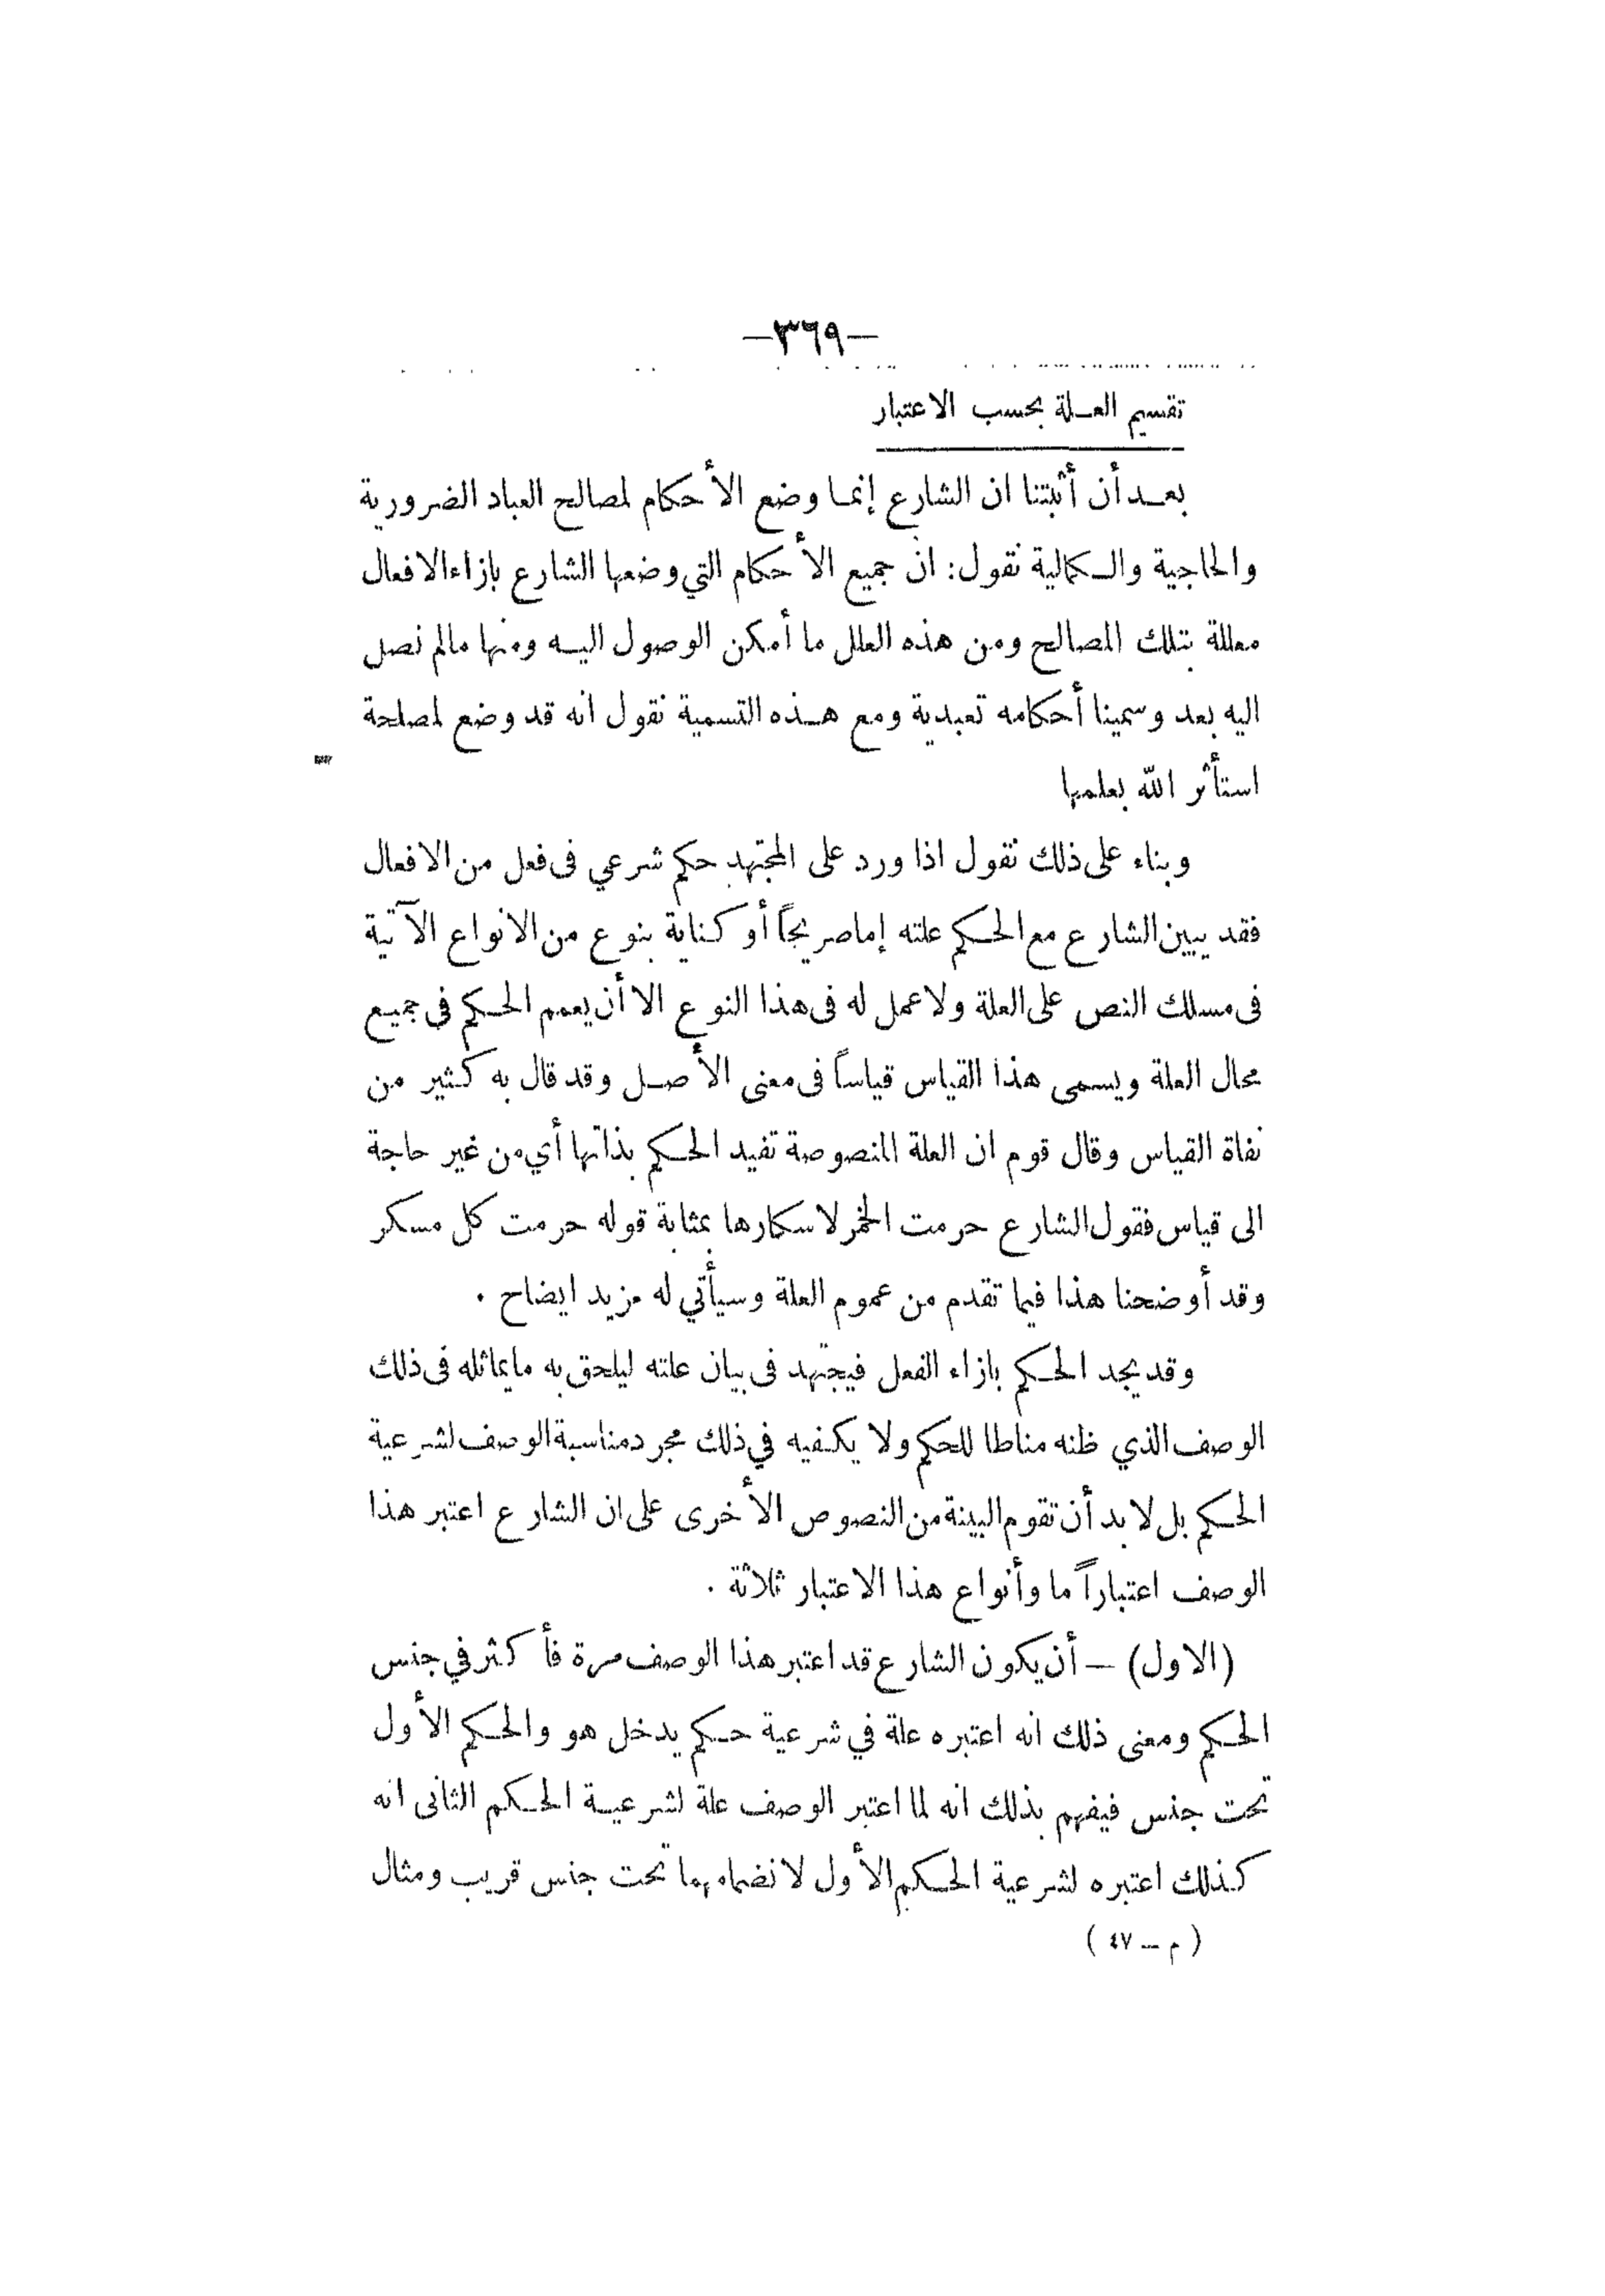 —٣٦٩—
تقسيم العلة بحسب الاعتبار
بعد أن أثبتنا ان الشارع إنما وضع الأحكام لمصالح العباد الضرورية
والحاجية والكمالية نقول: ان جميع الأحكام التي وضعها الشارع بازاء الافعال
معللة بتلك المصالح ومن هذه العلل ما أمكن الوصول اليه ومنها مالم نصل
اليه بعد وسمينا أحكامه تعبدية ومع هذه التسمية نقول انه قد وضع لمصلحة
استأثر الله بعلمها
وبناء على ذلك نقول اذا ورد على المجتهد حكم شرعي فى فعل من الافعال
فقد يبين الشارع مع الحكم علته إما صريحاً أو كناية بنوع من الانواع الآتية
فى مسلك النص على العلة ولا عمل له فى هذا النوع الا أن يعمم الحكم في جميع
محال العلة ويسمى هذا القياس قياساً فى معنى الأصل وقد قال به كثير من
نفاة القياس وقال قوم ان العلة المنصوصة تفيد الحكم بذاتها أي من غير حاجة
الى قياس فقول الشارع حرمت الخمر لاسكارها بمثابة قوله حرمت كل مسكر
وقد أوضحنا هذا فيما تقدم من عموم العلة وسيأتي له مزيد ايضاح .
وقد يجد الحكم بازاء الفعل فيجتهد فى بيان علته ليلحق به مايماثله فى ذلك
الوصف الذي ظنه مناطا للحكم ولا يكفيه في ذلك مجرد مناسبة الوصف لشرعية
الحكم بل لا بد أن تقوم البينة من النصوص الأخرى على ان الشارع اعتبر هذا
الوصف اعتباراً ما وأنواع هذا الاعتبار ثلاثة .
(الاول) — أن يكون الشارع قد اعتبر هذا الوصف مرة فأكثر في جنس
الحكم ومعنى ذلك انه اعتبره علة في شرعية حكم يدخل هو والحكم الأول
تحت جنس فيفهم بذلك انه لما اعتبر الوصف علة لشرعية الحكم الثانى انه
كذلك اعتبره لشرعية الحكم الأول لانضمامهما تحت جنس قريب ومثال
( م — ٤٧ )